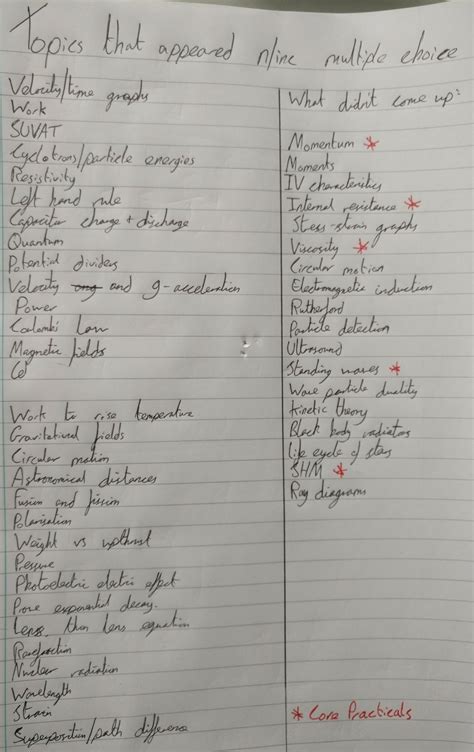 Topics that appeared n/inc multiple choice
Velocity/time graphs
Work
SUVAT
Cyclotrons/particle energies
Resistivity
Left hand rule
Capacitor charge + discharge
Quantum
Potential dividers
Velocity and g-acceleration
Power
Coulombs Law
Magnetic fields
Work to rise temperature
Gravitational fields
Circular motion
Astronomical distances
Fusion and fission
Polarisation
Weight vs upthrust
Pressure
Photoelectric electric effect
Prove exponential decay.
Lens, thin lens equation
Nuclear radiation
Wavelength
Strain
Superposition/path difference
What didn't come up?
Momentum *
Moments
IV characteristics
Internal resistance *
Stess-strain graphs
Viscosity *
Circular motion
Electromagnetic induction
Rutherford
Particle detection
Ultrasound
Standing waves *
Wave particle duality
Kinetic theory
Black body radiators
Life cycle of stars
SHM *
Ray diagrams
* Core Practicals